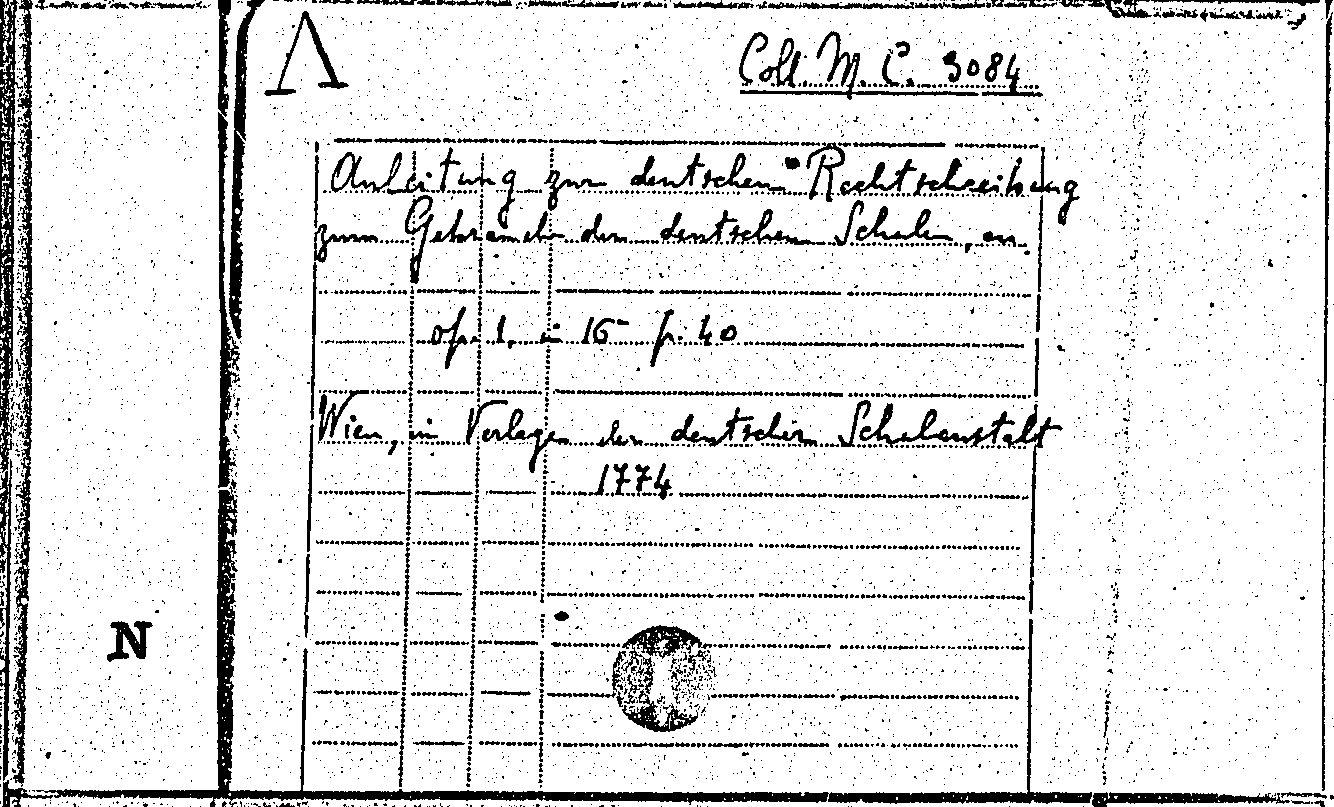 Λ
Coll. M. C. 3084
Anleitung zur deutschen Rechtschreibung
zum Gebrauch der deutschen Schulen, an.
op. 1. in 16 p. 40
Wien, in Verlagen der deutschen Schulanstalt
1774
N